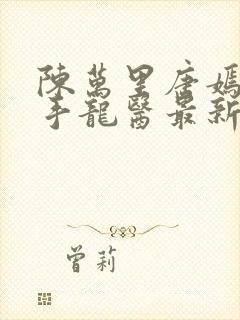 陳萬里唐嫣
手龍醫最新
曾莉